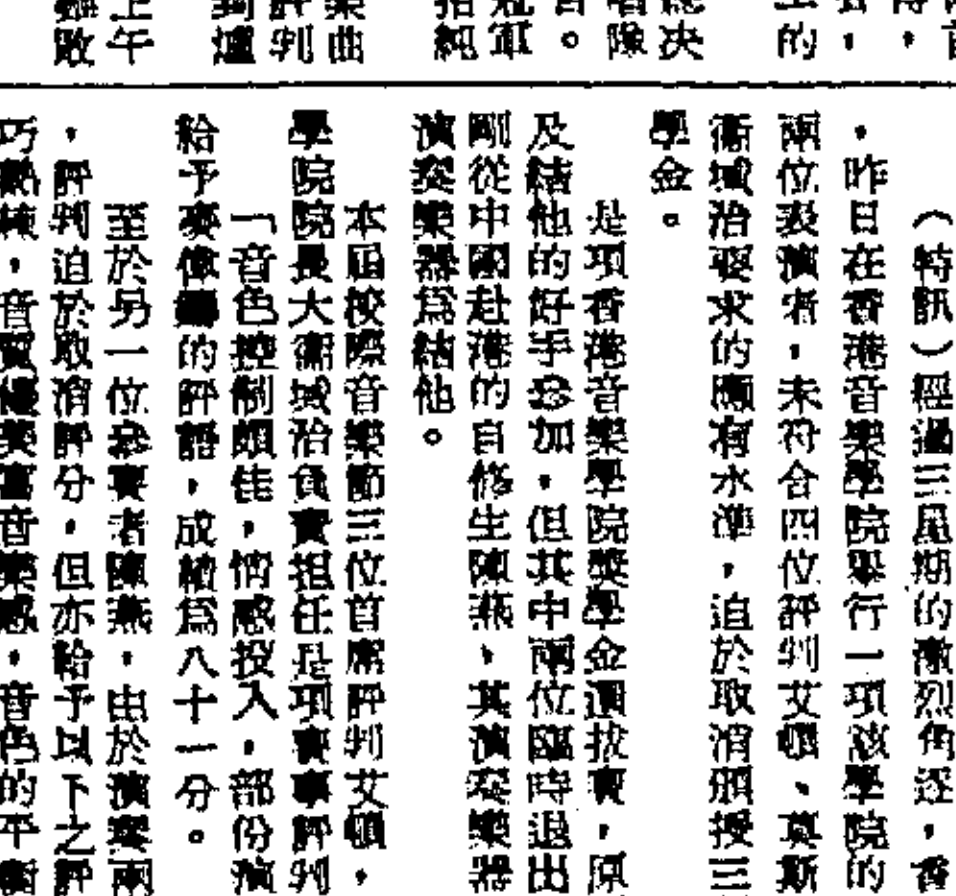 的，
應決
唱隊
冠軍
指純
樂曲
評判
到爐
上午
雖敗
（特訊）經過三星期的激烈角逐，香
，昨日在香港音樂學院舉行一項該學院的
兩位表演者，未符合四位評判艾頓、莫斯
衞城治要求的應有水準，迫於取消頒授三
學金。
是項香港音樂學院獎學金選拔賽，原
及結他的好手參加，但其中兩位臨時退出
剛從中國赴港的自修生陳燕，其演奏樂器
演奏樂器爲結他。
本屆校際音樂節三位首席評判艾頓，
學院院長大衞城治負責担任是項賽事評判，
「音色控制頗佳，情感投入，部份演
給予麥偉的評語，成績爲八十一分。
至於另一位參賽者陳燕，由於演奏兩
，評判迫於取消評分，但亦給予以下之評
巧熟練，音質優美富音樂感，音色的平衡